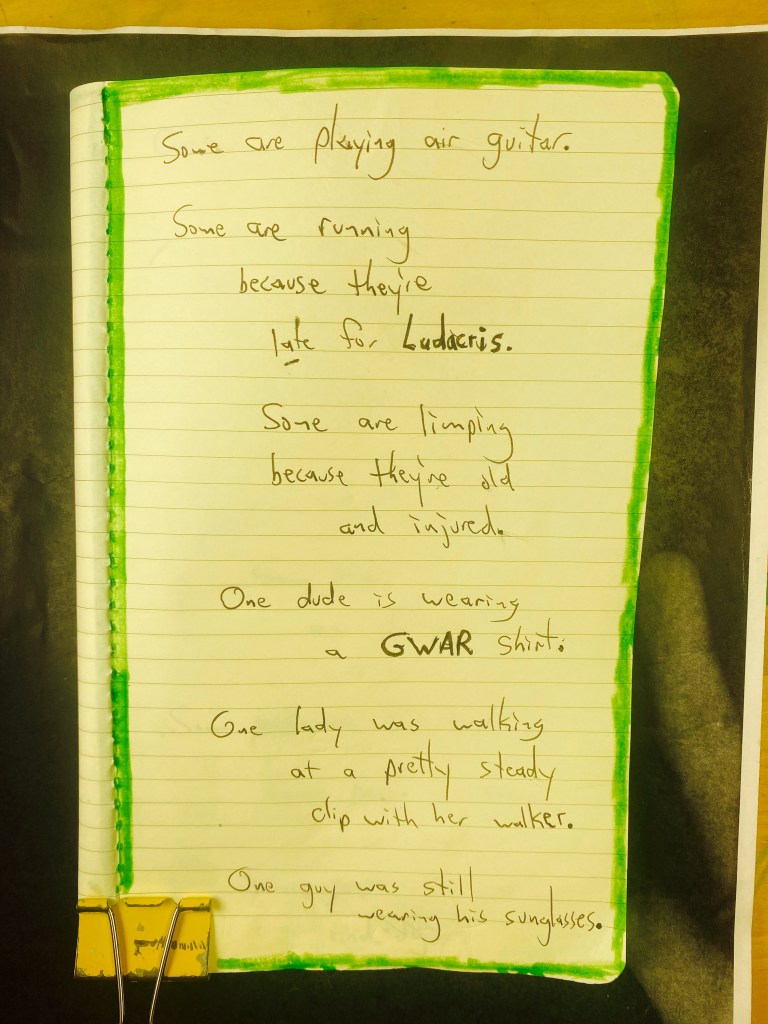 Some are playing air guitar.
Some are running
because they're
late for Ludacris.
Some are limping
because they're old
and injured.
One dude is wearing
a GWAR shirt.
One lady was walking
at a pretty steady
clip with her walker.
One guy was still
wearing his sunglasses.